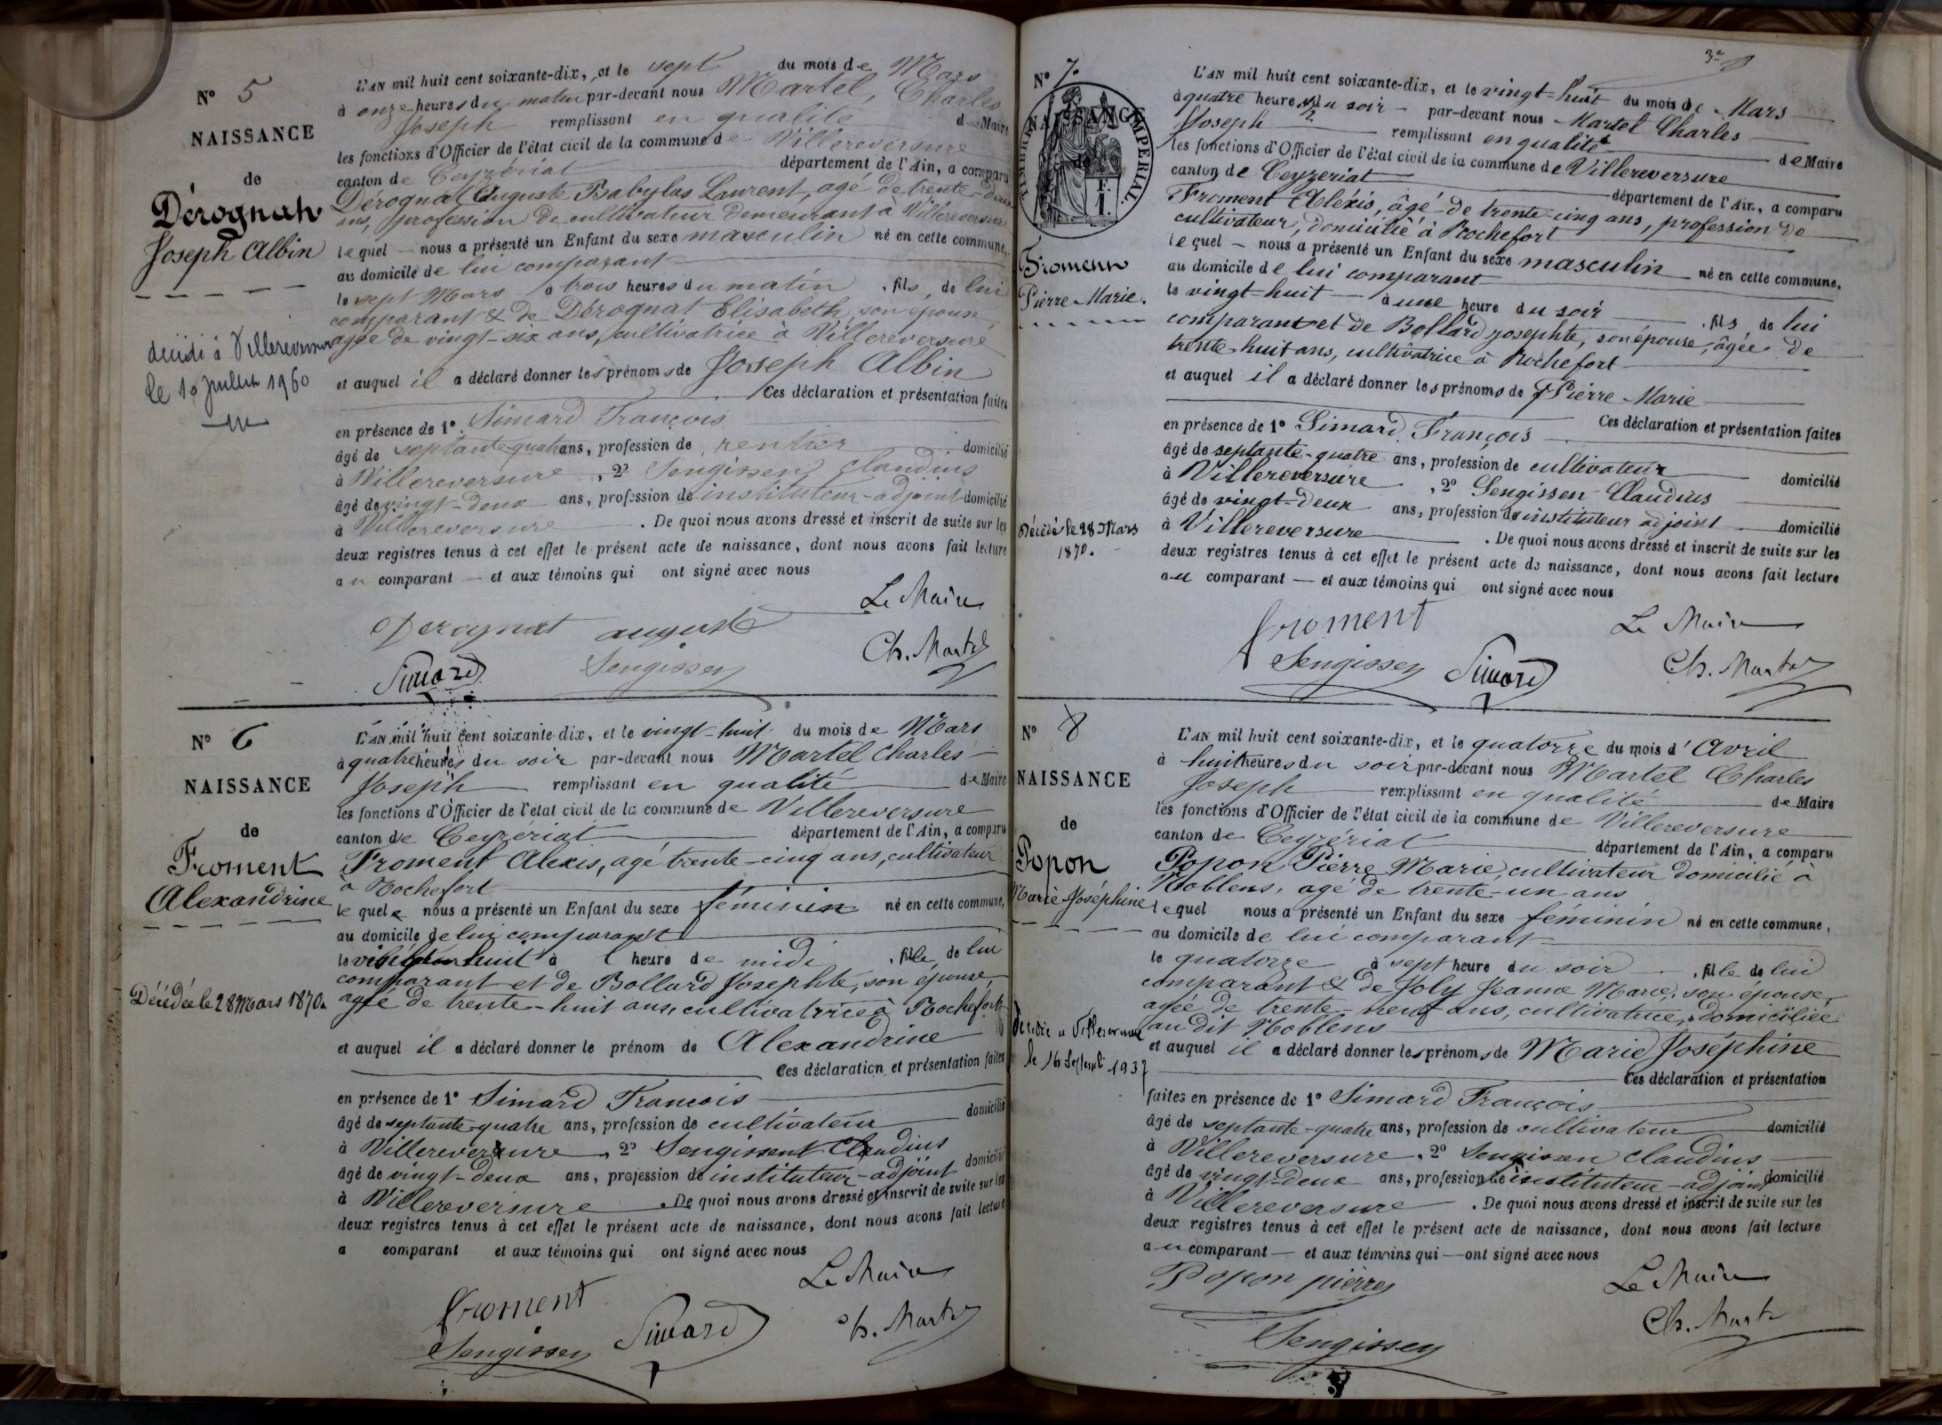 N° 5
NAISSANCE
de
Dérognat
Joseph Albin
décédé à Villereversure
le 10 Juillet 1960
L'AN mil huit cent soixante-dix, et le sept du mois de Mars
à onze heures du matin par-devant nous Martel, Charles
Joseph remplissant en qualité de Maire
les fonctions d'Officier de l'état civil de la commune de Villereversure
canton de Ceyzériat département de l'Ain, a comparu
Dérognat Auguste Babylas Laurent, agé de trente-deux
ans, profession de cultivateur demeurant à Villereversure
lequel nous a présenté un Enfant du sexe masculin né en cette commune,
au domicile de lui comparant
le sept Mars à trois heures du matin, fils, de lui
comparant & de Dérognat Elisabeth, son épouse
agée de vingt-six ans, cultivatrice à Villereversure
et auquel il a déclaré donner les prénoms de Joseph Albin
Ces déclaration et présentation faites
en présence de 1° Simard François
âgé de septante-quatre ans, profession de rentier domicilié
à Villereversure, 2° Sengissen Claudius
âgé de vingt-deux ans, profession de instituteur-adjoint domicilié
à Villereversure. De quoi nous avons dressé et inscrit de suite sur les
deux registres tenus à cet effet le présent acte de naissance, dont nous avons fait lecture
au comparant et aux témoins qui ont signé avec nous
Le Maire
Derognat auguste
Ch. Martel
Simard Sengissen
N° 6
NAISSANCE
de
Froment
Alexandrine
Décédée le 28 Mars 1870.
L'AN mil huit cent soixante-dix, et le vingt-huit du mois de Mars
à quatre heures du soir par-devant nous Martel Charles
Joseph remplissant en qualité de Maire
les fonctions d'Officier de l'état civil de la commune de Villereversure
canton de Ceyzeriat département de l'Ain, a comparu
Froment Alexis, agé trente-cinq ans, cultivateur
à Rochefort
lequel nous a présenté un Enfant du sexe féminin né en cette commune,
au domicile de lui comparant
le vingt-huit à 1 heure de midi, fille, de lui
comparant et de Bollard Josephte, son épouse
agée de trente-huit ans, cultivatrice à Rochefort
et auquel il a déclaré donner le prénom de Alexandrine
Ces déclaration et présentation faites
en présence de 1° Simard François
âgé de septante-quatre ans, profession de cultivateur domicilié
à Villereversure, 2° Sengissent Claudius
âgé de vingt-deux ans, profession de instituteur-adjoint domicilié
à Villereversure. De quoi nous avons dressé et inscrit de suite sur les
deux registres tenus à cet effet le présent acte de naissance, dont nous avons fait lecture
a comparant et aux témoins qui ont signé avec nous
Le Maire
froment
Simard Ch. Martel
Sengissen
3e
N° 7.
NAISSANCE
de
TIMBRE IMPERIAL.
F.
1.
Froment
Pierre-Marie.
Décédé le 28 Mars
1870.
L'AN mil huit cent soixante-dix, et le vingt-huit du mois de Mars
à quatre heures du soir par-devant nous Martel Charles
Joseph remplissant en qualité de Maire
les fonctions d'Officier de l'état civil de la commune de Villereversure
canton de Ceyzeriat département de l'Ain, a comparu
Froment Alexis, âgé de trente-cinq ans, profession de
cultivateur, domicilié à Rochefort
lequel nous a présenté un Enfant du sexe masculin né en cette commune,
au domicile de lui comparant
le vingt-huit à une heure du soir, fils, de lui
comparant et de Bollard Josephte, son épouse, âgée de
trente-huit ans, cultivatrice à Rochefort
et auquel il a déclaré donner les prénoms de Pierre-Marie
Ces déclaration et présentation faites
en présence de 1° Simard François
âgé de septante-quatre ans, profession de cultivateur domicilié
à Villereversure, 2° Sengissen Claudius
âgé de vingt-deux ans, profession de instituteur adjoint domicilié
à Villereversure. De quoi nous avons dressé et inscrit de suite sur les
deux registres tenus à cet effet le présent acte de naissance, dont nous avons fait lecture
au comparant et aux témoins qui ont signé avec nous
froment Le Maire
Sengissen Simard Ch. Martel
N° 8
NAISSANCE
de
Popon
Marie-Joséphine
Décédée à Villereversure
le 16 Septembre 1937
L'AN mil huit cent soixante-dix, et le quatorze du mois d'Avril
à huit heures du soir par-devant nous Martel Charles
Joseph remplissant en qualité de Maire
les fonctions d'Officier de l'état civil de la commune de Villereversure
canton de Ceyzériat département de l'Ain, a comparu
Popon Pierre Marie, cultivateur domicilié à
Noblens, agé de trente-un ans
lequel nous a présenté un Enfant du sexe féminin né en cette commune,
au domicile de lui comparant
le quatorze à sept heure du soir, fille de lui
comparant & de Joly Jeanne Marie, son épouse,
agée de trente-neuf ans, cultivatrice, domiciliée
au dit Noblens
et auquel il a déclaré donner les prénoms de Marie Joséphine
Ces déclaration et présentation
faites en présence de 1° Simard François
âgé de septante-quatre ans, profession de cultivateur domicilié
à Villereversure, 2° Sengissen Claudius
âgé de vingt-deux ans, profession de instituteur-adjoint domicilié
à Villereversure. De quoi nous avons dressé et inscrit de suite sur les
deux registres tenus à cet effet le présent acte de naissance, dont nous avons fait lecture
au comparant et aux témoins qui ont signé avec nous
Popon pierre Le Maire
Ch. Martel
Sengissen